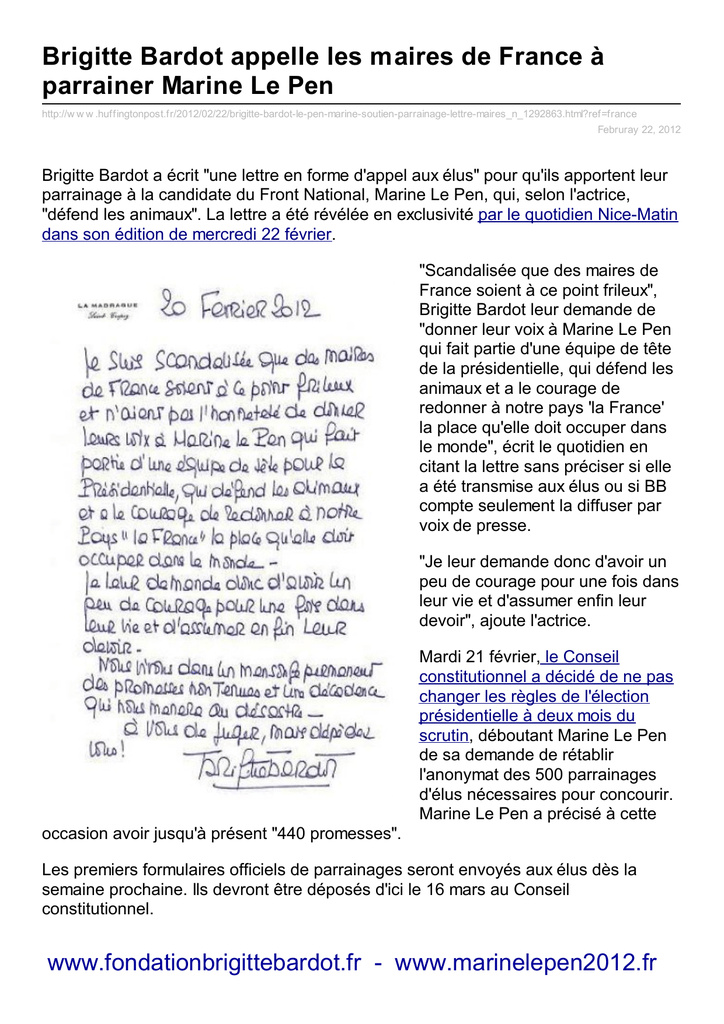 Brigitte Bardot appelle les maires de France à
parrainer Marine Le Pen
http://w w w .huffingtonpost.fr/2012/02/22/brigitte-bardot-le-pen-marine-soutien-parrainage-lettre-maires_n_1292863.html?ref=france
Februray 22, 2012
Brigitte Bardot a écrit "une lettre en forme d'appel aux élus" pour qu'ils apportent leur
parrainage à la candidate du Front National, Marine Le Pen, qui, selon l'actrice,
"défend les animaux". La lettre a été révélée en exclusivité par le quotidien Nice-Matin
dans son édition de mercredi 22 février.
LA MADRAGUE
Saint-Tropez
20 Fevrier 2012
Je suis scandalisée que des maires
de France soient à ce point frileux
et n'aient pas l'honneteté de donner
leurs voix à Marine le Pen qui fait
partie d'une équipe de tête pour la
Présidentielle, qui défend les animaux
et a le courage de redonner à notre
Pays "la France" la place qu'elle doit
occuper dans le monde -
Je leur demande donc d'avoir un
peu de courage pour une fois dans
leur vie et d'assumer en fin leur
devoir -
Nous vivons dans un mensonge permanent
des promesses non tenues et une décadence
qui nous menera au désastre -
à vous de juger, mais dépéchez
vous!
Brigitte Bardot
"Scandalisée que des maires de
France soient à ce point frileux",
Brigitte Bardot leur demande de
"donner leur voix à Marine Le Pen
qui fait partie d'une équipe de tête
de la présidentielle, qui défend les
animaux et a le courage de
redonner à notre pays 'la France'
la place qu'elle doit occuper dans
le monde", écrit le quotidien en
citant la lettre sans préciser si elle
a été transmise aux élus ou si BB
compte seulement la diffuser par
voix de presse.
"Je leur demande donc d'avoir un
peu de courage pour une fois dans
leur vie et d'assumer enfin leur
devoir", ajoute l'actrice.
Mardi 21 février, le Conseil
constitutionnel a décidé de ne pas
changer les règles de l'élection
présidentielle à deux mois du
scrutin, déboutant Marine Le Pen
de sa demande de rétablir
l'anonymat des 500 parrainages
d'élus nécessaires pour concourir.
Marine Le Pen a précisé à cette
occasion avoir jusqu'à présent "440 promesses".
Les premiers formulaires officiels de parrainages seront envoyés aux élus dès la
semaine prochaine. Ils devront être déposés d'ici le 16 mars au Conseil
constitutionnel.
www.fondationbrigittebardot.fr - www.marinelepen2012.fr